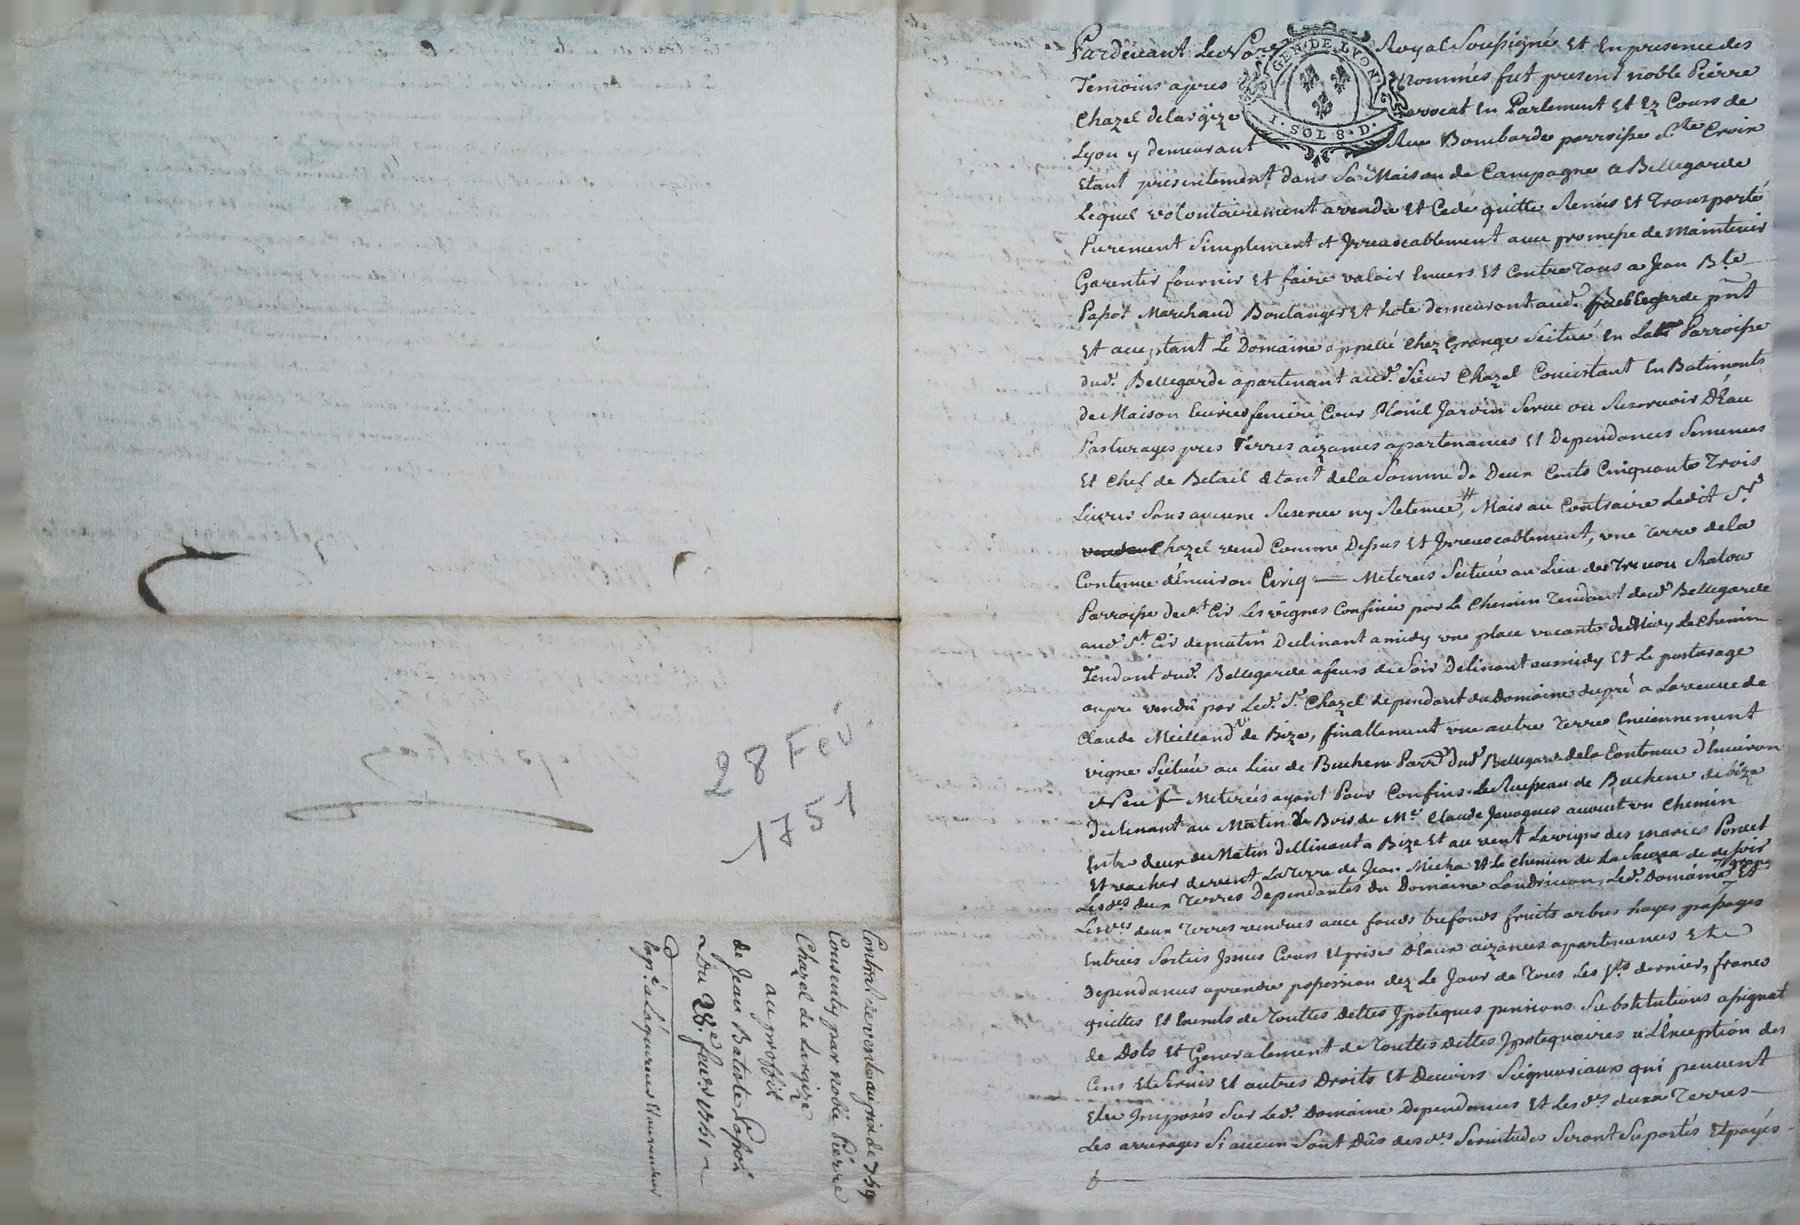 28 Fév.
1751
Contrat de vente au prix de 759
Consenty par noble Pierre
Chazel de Largize
au proffit
de Jean Batiste Papot
Du 28e fevr. 1751
Pardevant Le No.re Royal Soussigné Et En presence des
Temoins apres nommés fut present noble Pierre
Chazel delargize avocat En Parlement Et Ez Cours de
Lyon y demeurant Rue Bombarde parroisse Ste Croix
Etant presentement dans Sa Maison de Campagne a Bellegarde
Lequel volontairement a vendu Et Cedé quitté Remis Et Transporté
Purement Simplement et Jrrevocablement avec promesse de Maintenir
Garentir fournir Et faire valoir Envers Et Contre Tous a Jean Bte
Papot Marchand Boulanger Et hote demeurant aud. Bellegarde pnt
Et acceptant Le Domaine appellé Chez Grange Scitué En Lad. Parroisse
dud. Bellegarde apartenant aud. Sieur Chazel Concistant En Batiments
de Maison Ecuries feniere Cour Jardin Serve ou Reservoir D'Eau
Pasturages pres Terres aizances apartenances Et Dependances Semences
Et Chef de Betail Etant de la Somme de Deux Cents Cinquante Trois
Livres Sans aucune Reserve ny Retenue, Mais au Contraire Ledit Sr
Chazel vend Comme Dessus Et Jrrevocablement, une Terre de la
Contenue d'Environ Cinq Meterées Scituée au Lieu de
Parroisse de St Cir Les vignes Confinée par Le Chemin Tendant dud. Bellegarde
aud. St Cir de matin Declinant a midy une place vacante de Midy Le Chemin
Tendant dud. Bellegarde a feurs de Soir Delinant au midy Et Le pasturage
au pré vendu par Led. Sr. Chazel dependant du Domaine du pré a La veuve de
Claude Meilland de Bize, finallement une autre Terre Enciennement
vigne Scituée au Lieu de Buchene Parr. dud. Bellegarde de la Contenue d'Environ
Neuf Meterées ayant Pour Confins Le Ruisseau de Buchene de bize
Declinant au Matin Le Bois de Me Claude Javogues avocat un Chemin
Entre deux de Matin Dellinant a Bize Et au vent La vigne des maries Poncet
Et vacher de vent La Terre de Jean Micha Et Le Chemin de La de Soir
Lesd. deux Terres Dependantes du Domaine Landrivon, Led. Domaine Et
Lesd. deux Terres vendues avec fonds trefonds fruits arbres hayes passages
Entrées Sorties Jssues Cours Et prises D'Eaux aizances apartenances Et
Dependances a prendre possession dez Le Jour de Tous Les Sts dernier, francs
quittes Et Exempts de Touttes dettes Jpoteques pensions Substitutions assignat
de Dots Et Generalement de Touttes dettes Jpotequaires a L'Exception des
Cens Et Servis Et autres Droits Et Devoirs Seigneuriaux qui peuvent
Etre Jmposés Sur Led. Domaine Dependances Et Lesd. deux Terres
Les arrerages Si aucun Sont Dûs desd. Servitudes Seront Suportés Et payés
GEN. DE LYON.
1. SOL 8. D.